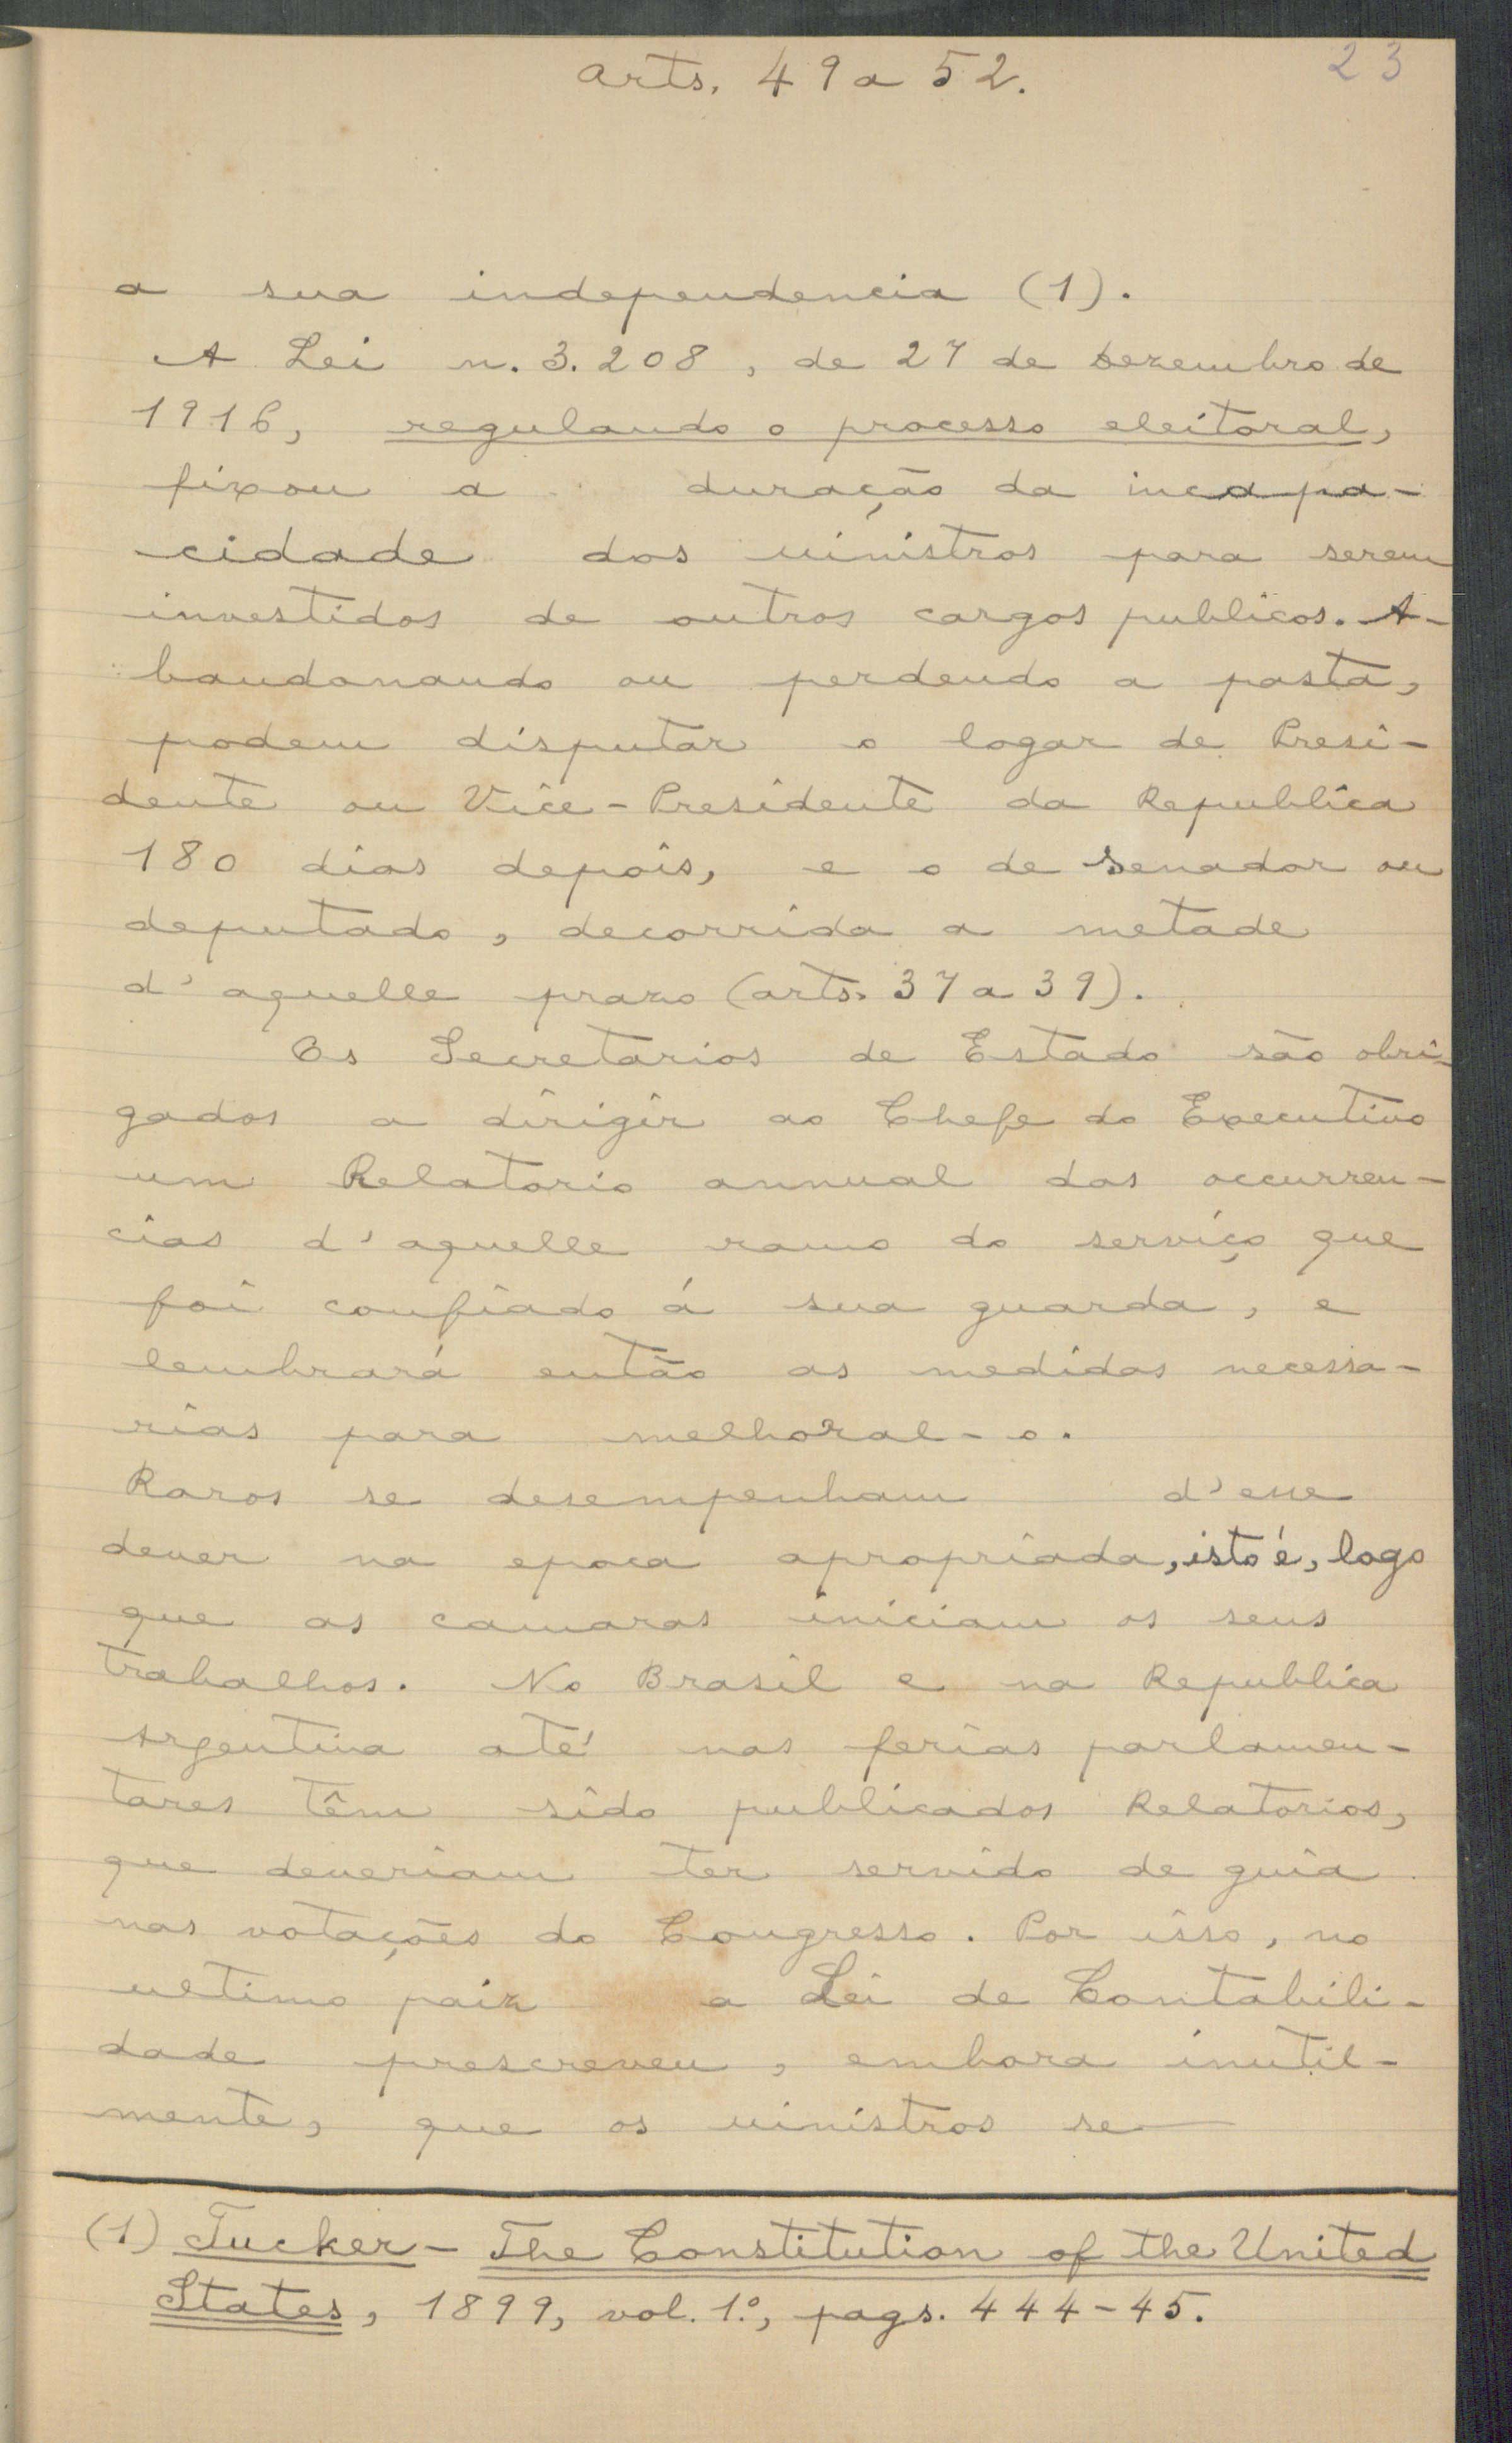 arts. 49 a 52.
23
a sua independencia (1).
A Lei n. 3.208, de 27 de Dezembro de
1916, regulando o processo eleitoral,
fixou a duração da incapa-
cidade dos ministros para serem
investidos de outros cargos publicos. A-
bandonando ou perdendo a pasta,
podem disputar o logar de Presi-
dente ou Vice-Presidente da Republica
180 dias depois, e o de senador ou
deputado, decorrida a metade
d'aquelle prazo (arts. 37 a 39).
Os Secretarios de Estado são obri-
gados a dirigir ao Chefe do Executivo
um Relatorio annual das occurren-
cias d'aquelle ramo do serviço que
foi confiado á sua guarda, e
lembrará então as medidas necessa-
rias para melhoral-o.
Raros se desempenham d'esse
dever na epoca apropriada, isto é, logo
que as camaras iniciam os seus
trabalhos. No Brasil e na Republica
Argentina até nas ferias parlamen-
tares têm sido publicados Relatorios,
que deveriam ter servido de guia
nas votações do Congresso. Por isso, no
ultimo paiz a Lei de Contabili-
dade prescreveu, embora inutil-
mente, que os ministros se
(1) Tucker - The Constitution of the United
States, 1899, vol. 1º, pags. 444-45.